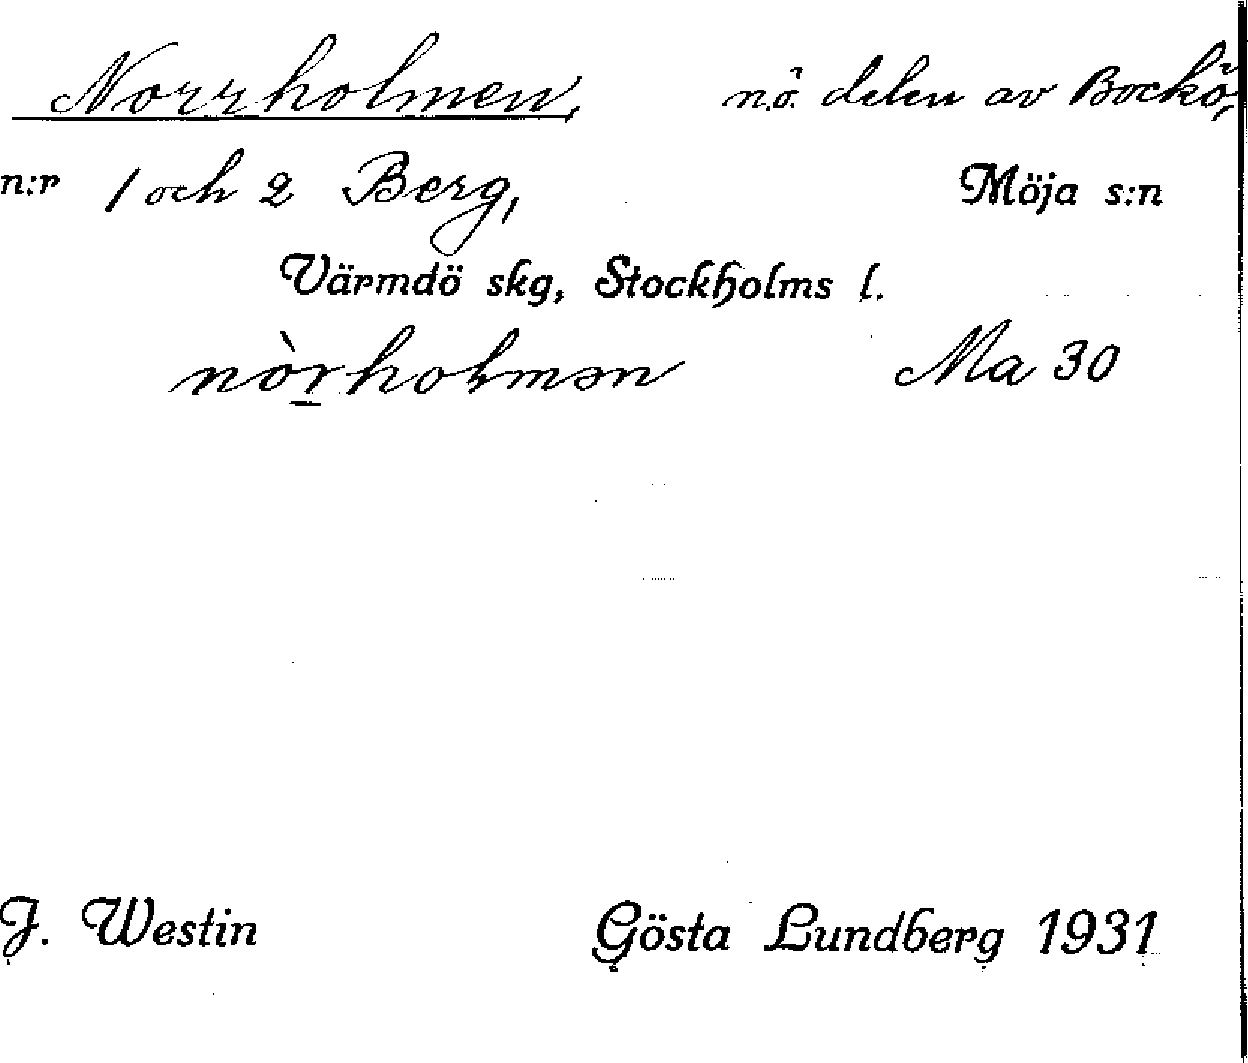 Norrholmen, n.ö. delen av Bockö,
n:r 1 och 2 Berg, Möja s:n
Värmdö skg, Stockholms l.
nòrholmən Ma 30
J. Westin Gösta Lundberg 1931